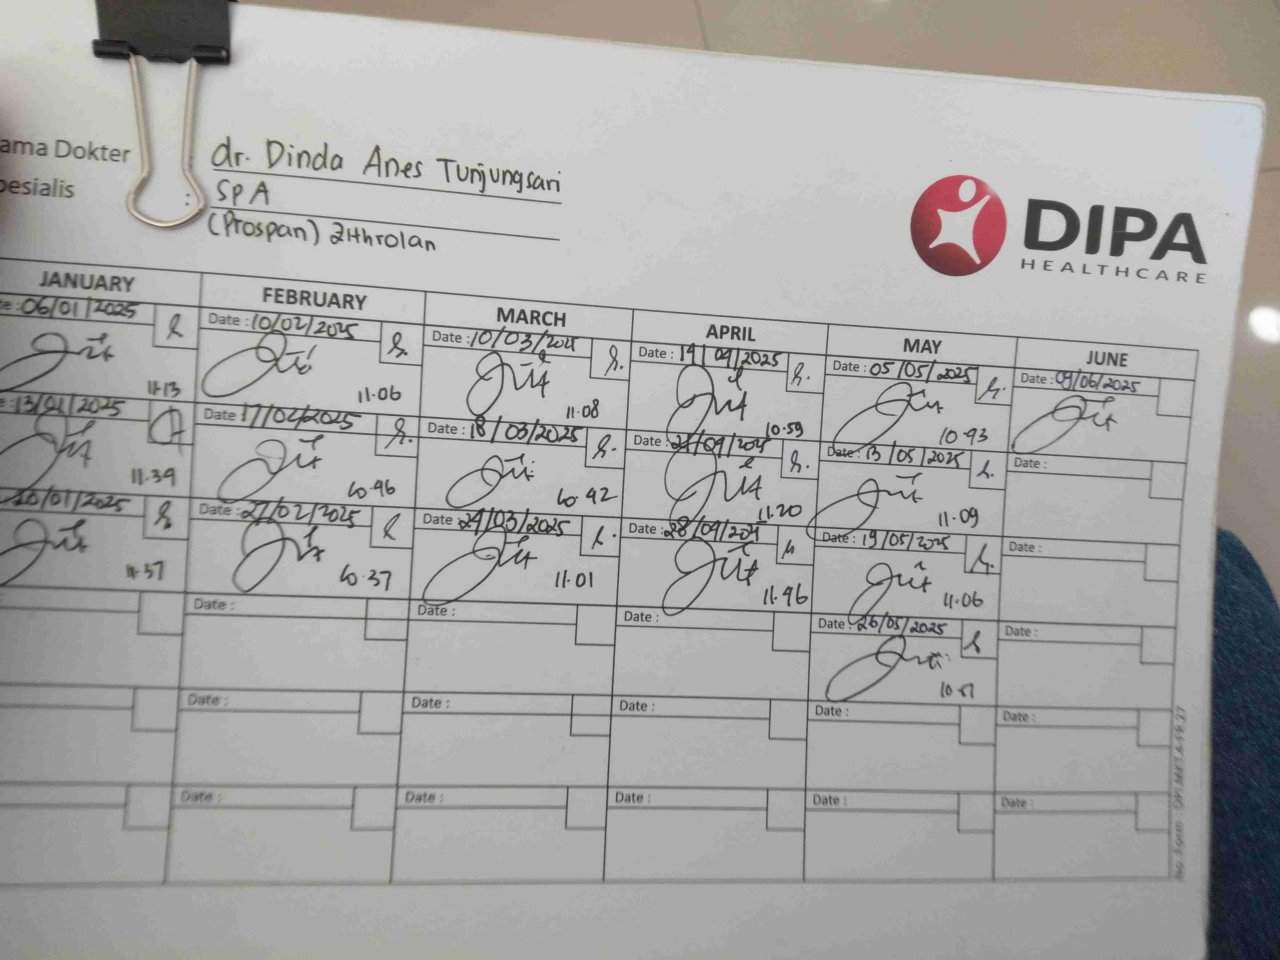 ama Dokter
dr. Dinda Anes Tunjungsari
pesialis : SpA
(Prospan) Zithrolan
DIPA
HEALTHCARE
JANUARY FEBRUARY MARCH APRIL MAY JUNE
te : 06/01/2025 Date : 10/02/2025 Date : 10/03/2025 Date : 14/04/2025 Date : 05/05/2025 Date : 09/06/2025
11.13 11.06 11.08 10.59 10.43
e : 13/01/2025 Date : 17/02/2025 Date : 18/03/2025 Date : 21/04/2025 Date : 13/05/2025 Date :
11.39 10.46 10.42 11.20 11.09
20/01/2025 Date : 27/02/2025 Date : 24/03/2025 Date : 28/04/2025 Date : 19/05/2025 Date :
11.37 10.37 11.01 11.46 11.06
Date : Date : Date : Date : 26/05/2025 Date :
10.51
Date : Date : Date : Date : Date :
Date : Date : Date : Date : Date :